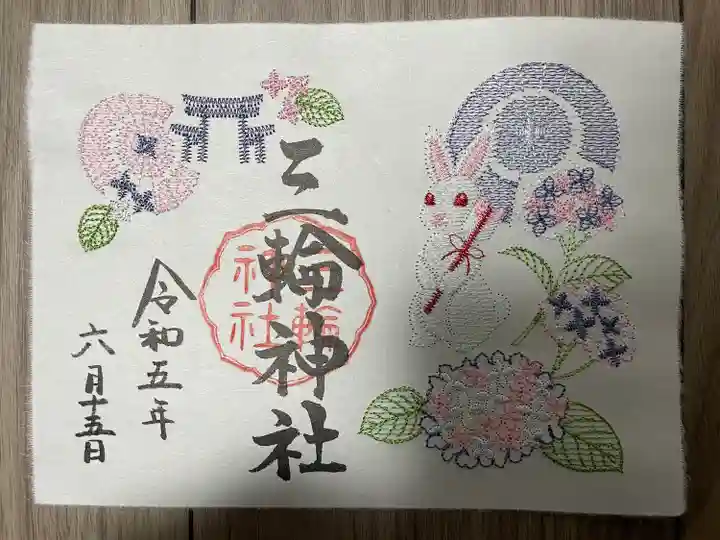 三輪神社
三輪神社
令和五年
六月十五日